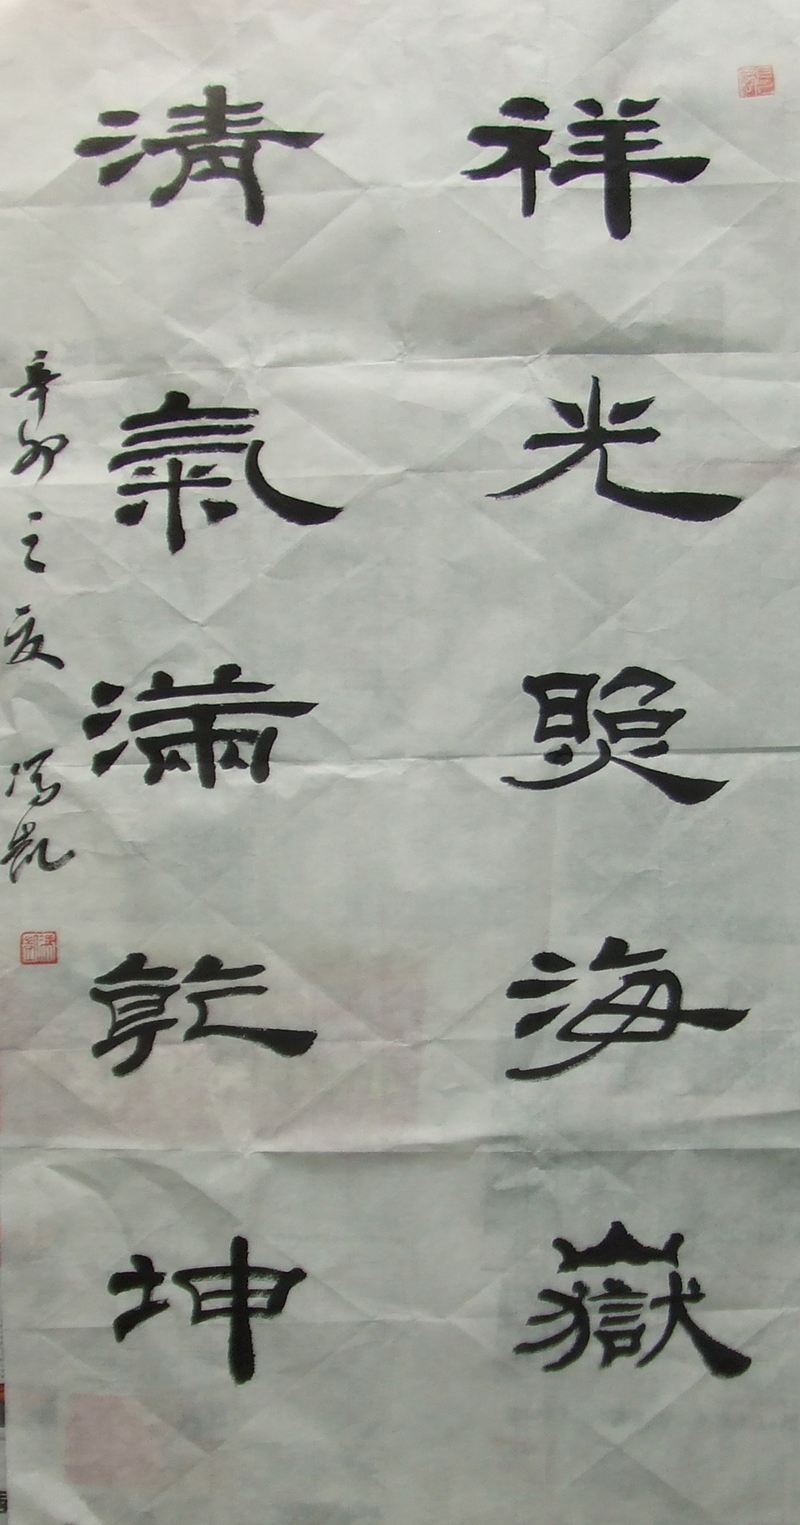 祥光照海嶽
清氣滿乾坤
辛卯之夏 馮凱